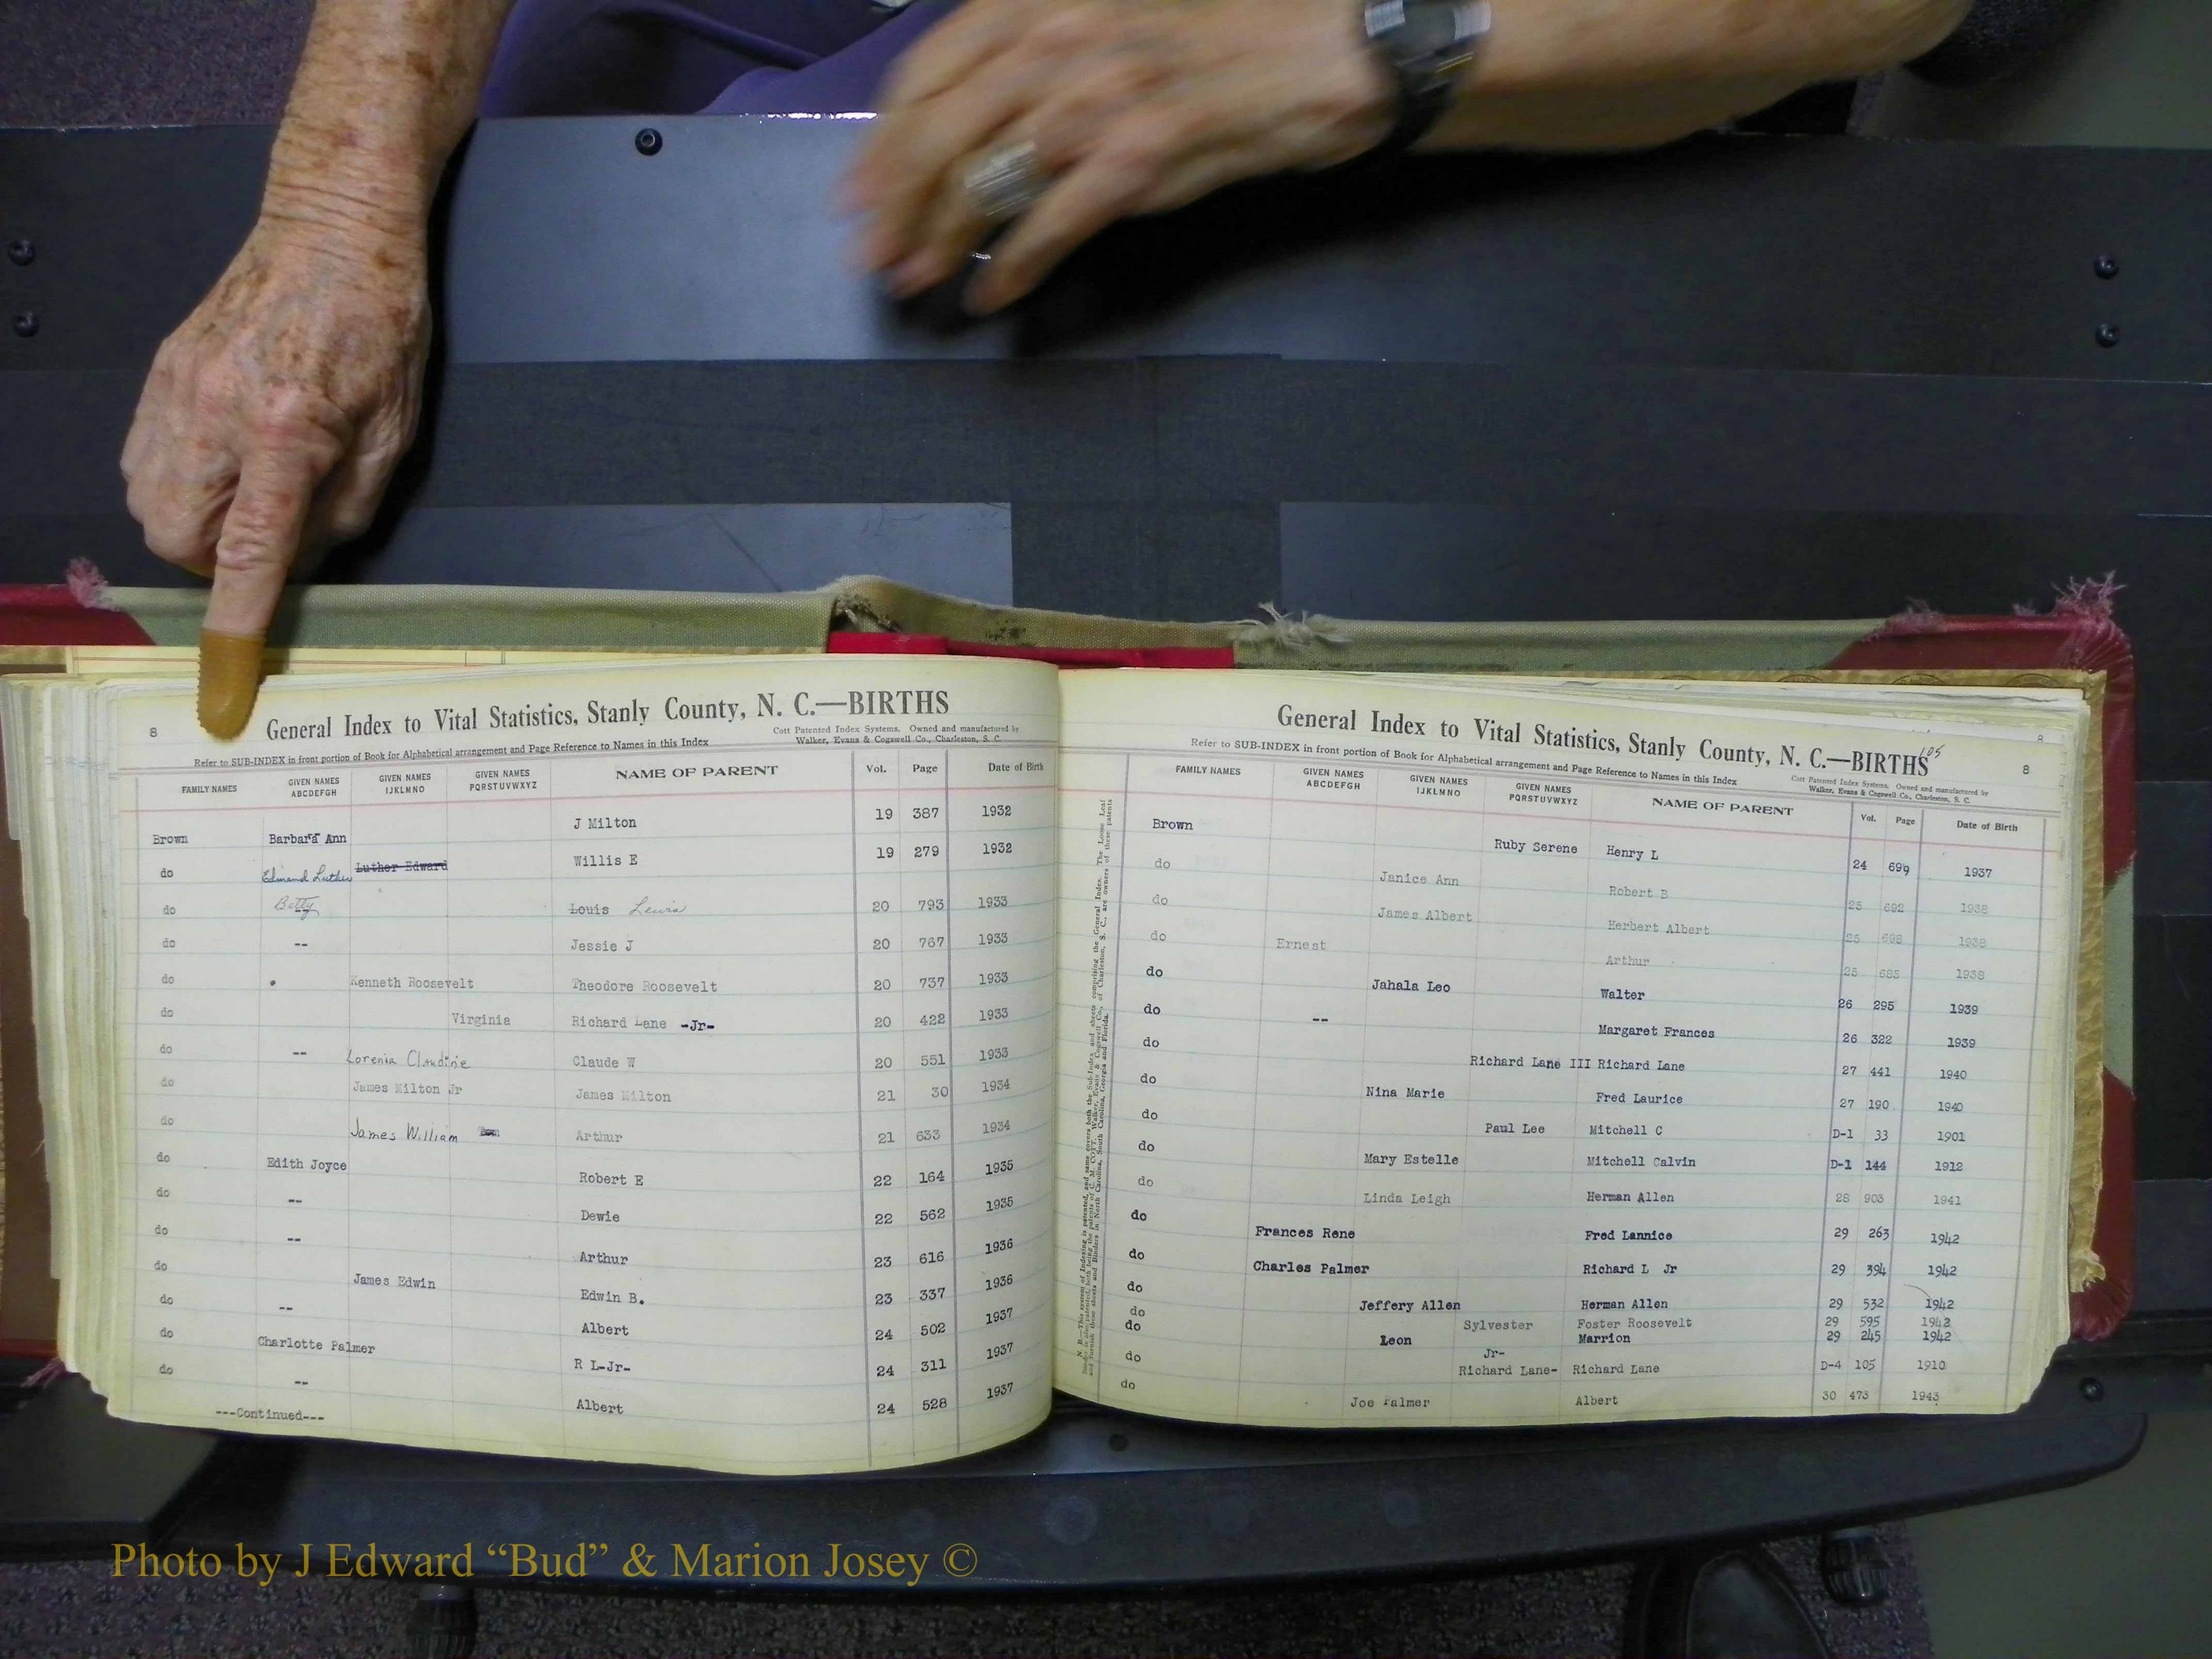 8
General Index to Vital Statistics, Stanly County, N. C.—BIRTHS
Cott Patented Index Systems. Owned and manufactured by
Refer to SUB-INDEX in front portion of Book for Alphabetical arrangement and Page Reference to Names in this Index Walker, Evans & Cogswell Co., Charleston, S. C.
FAMILY NAMES GIVEN NAMES ABCDEFGH GIVEN NAMES IJKLMNO GIVEN NAMES PQRSTUVWXYZ NAME OF PARENT Vol. Page Date of Birth
Brown Barbara Ann J Milton 19 387 1932
do Edmund Luther Luther Edward Willis E 19 279 1932
do Betty Louis Lewis 20 793 1933
do -- Jessie J 20 767 1933
do Kenneth Roosevelt Theodore Roosevelt 20 737 1933
do Virginia Richard Lane -Jr- 20 422 1933
do -- Lorenia Claudine Claude W 20 551 1933
do James Milton Jr James Milton 21 30 1934
do James William Arthur 21 633 1934
do Edith Joyce Robert E 22 164 1935
do -- Dewie 22 562 1935
do -- Arthur 23 616 1936
do James Edwin Edwin B. 23 337 1936
do -- Albert 24 502 1937
do Charlotte Palmer R L-Jr- 24 311 1937
do -- Albert 24 528 1937
---Continued---
General Index to Vital Statistics, Stanly County, N. C.—BIRTHS
105
8
8
Cott Patented Index Systems. Owned and manufactured by
Refer to SUB-INDEX in front portion of Book for Alphabetical arrangement and Page Reference to Names in this Index Walker, Evans & Cogswell Co., Charleston, S. C.
FAMILY NAMES GIVEN NAMES ABCDEFGH GIVEN NAMES IJKLMNO GIVEN NAMES PQRSTUVWXYZ NAME OF PARENT Vol. Page Date of Birth
Brown Ruby Serene Henry L 24 699 1937
do Janice Ann Robert B 25 692 1938
do James Albert Herbert Albert 25 698 1938
do Ernest Arthur 25 685 1938
do Jahala Leo Walter 26 295 1939
do -- Margaret Frances 26 322 1939
do Richard Lane III Richard Lane 27 441 1940
do Nina Marie Fred Laurice 27 190 1940
do Paul Lee Mitchell C D-1 33 1901
do Mary Estelle Mitchell Calvin D-1 144 1912
do Linda Leigh Herman Allen 28 903 1941
do Frances Rene Fred Lannice 29 263 1942
do Charles Palmer Richard L Jr 29 394 1942
do Jeffery Allen Herman Allen 29 532 1942
do Sylvester Foster Roosevelt 29 595
do Leon Marrion 29 245 1942
do Jr- Richard Lane- Richard Lane D-4 105 1910
do Joe Palmer Albert 30 473 1943
Photo by J Edward “Bud” & Marion Josey ©